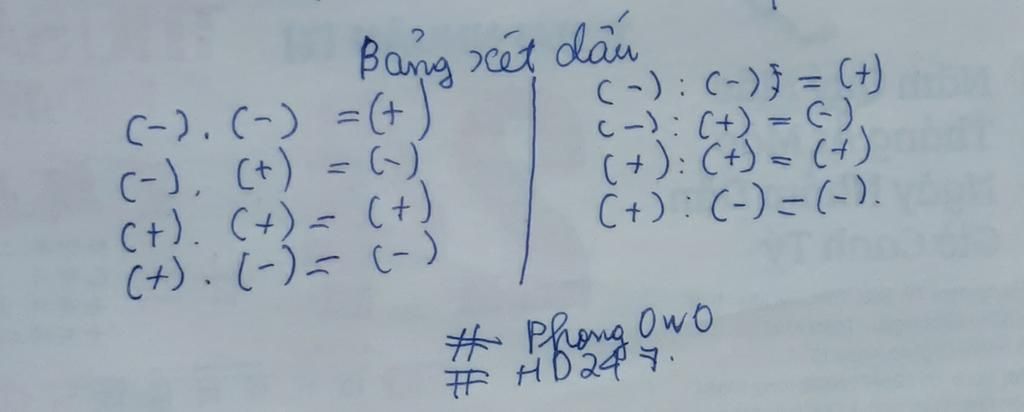 Bảng xét dấu
(-) . (-) = (+)
(-) . (+) = (-)
(+) . (+) = (+)
(+) . (-) = (-)
(-) : (-) = (+)
(-) : (+) = (-)
(+) : (+) = (+)
(+) : (-) = (-).
# Phong OwO
# HD247.